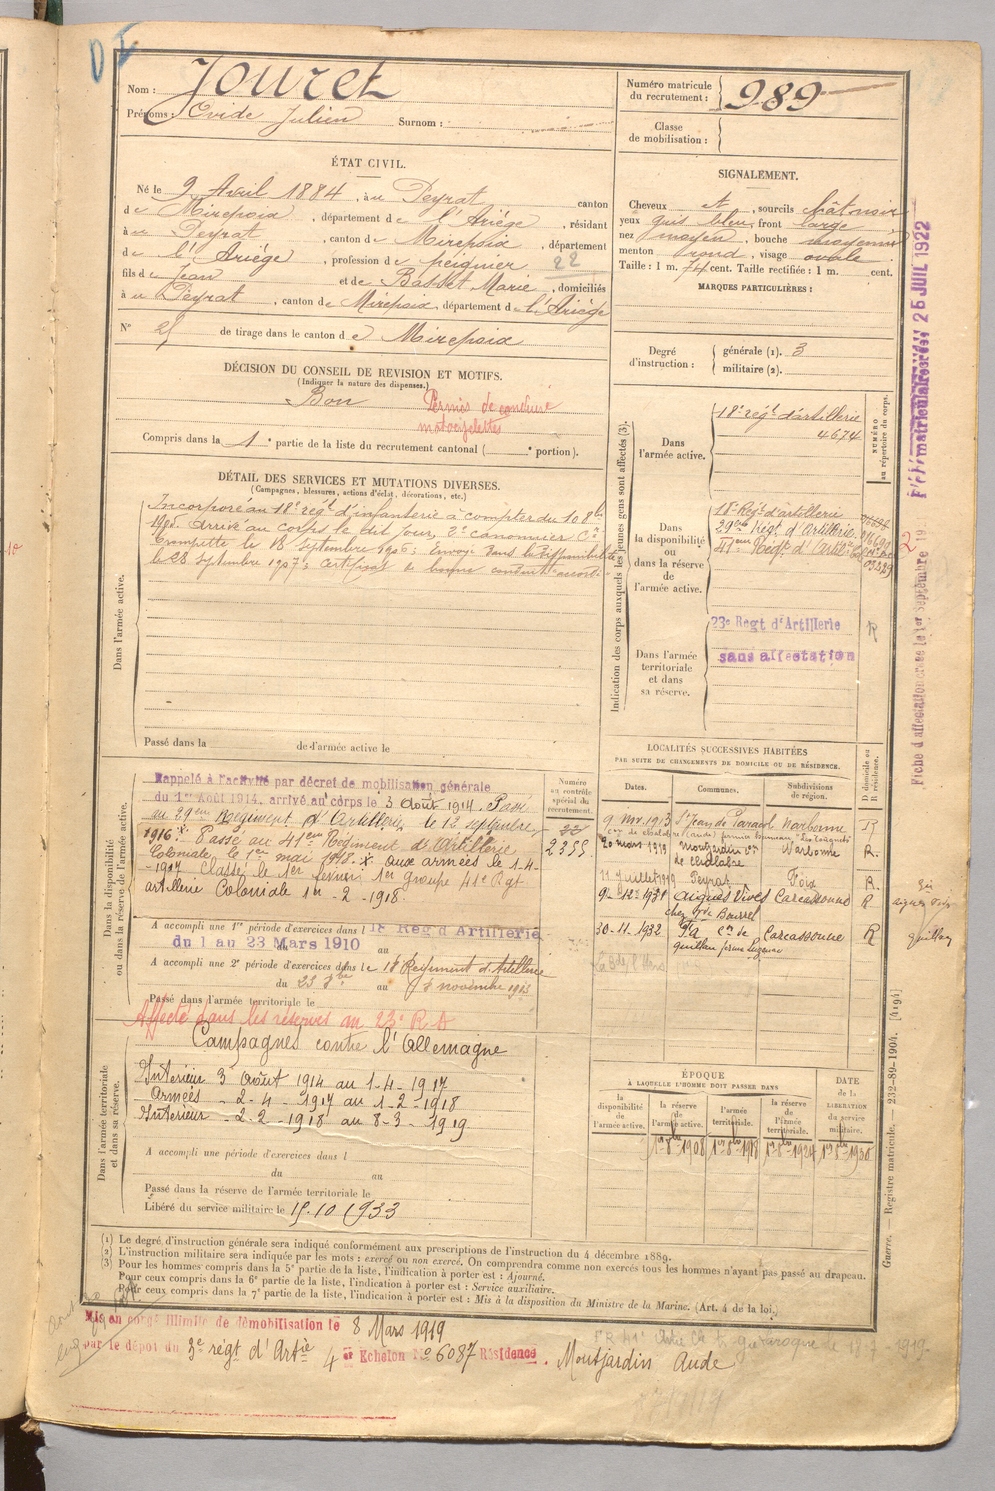 D I
Nom : Jouret
Prénoms : Ovide Julien Surnom :
Numéro matricule du recrutement : 989
Classe de mobilisation :
ÉTAT CIVIL.
Né le 9 Avril 1884, à Peyrat canton
de Mirepoix, département de l'Ariége, résidant
à Peyrat, canton de Mirepoix, département
de l'Ariége, profession de peignier 22
fils de Jean et de Basset Marie, domiciliés
à Peyrat, canton de Mirepoix, département de l'Ariége
N° 25 de tirage dans le canton de Mirepoix
SIGNALEMENT.
Cheveux et, sourcils chât noir
yeux gris bleu, front large
nez moyen, bouche moyenne
menton rond, visage ovale
Taille : 1 m. 74 cent. Taille rectifiée : 1 m. cent.
MARQUES PARTICULIÈRES :
Degré d'instruction :
générale (1). 3
militaire (2).
DÉCISION DU CONSEIL DE REVISION ET MOTIFS.
(Indiquer la nature des dispenses.)
Bon Permis de conduire
motocyclettes
Compris dans la 1e partie de la liste du recrutement cantonal ( e portion).
DÉTAIL DES SERVICES ET MUTATIONS DIVERSES.
(Campagnes, blessures, actions d'éclat, décorations, etc.)
Dans l'armée active.
Incorporé au 18e régt d'infanterie à compter du 10 8bre
1905. Arrivé au corps le dit jour, 2e canonnier Cr
le 18 Septembre 1906; Envoyé dans la disponibilité
le 28 Septembre 1907; certificat de bonne conduite accordé
Passé dans la de l'armée active le
Indication des corps auxquels les jeunes gens sont affectés (3).
NUMÉRO au répertoire du corps.
Dans l'armée active.
18e régt d'artillerie
4674
Dans la disponibilité ou dans la réserve de l'armée active.
18e Régt d'artillerie
29ème Régt d'Artillerie
41ème Régt d'Artie Cle
Dans l'armée territoriale et dans sa réserve.
23e Regt d'Artillerie R
sans affectation
Dans la disponibilité ou dans la réserve de l'armée active.
Rappelé à l'activité par décret de mobilisation générale
du 1er Août 1914, arrivé au corps le 3 Août 1914. Passé
au 29ème Régiment d'Artillerie le 12 septembre
1916. x. Passé au 41ème Régiment d'Artillerie
Coloniale le 1er mai 1918. x. aux armées le 1-4-
-1917 Classé le 1er février 1er groupe 41e Rgt
artillerie Coloniale 1er -2-1918.
Numéro au contrôle spécial du recrutement.
22
2355
A accompli une 1re période d'exercices dans l 18 Reg d'Artillerie
du 1 au 23 Mars 1910 au
A accompli une 2e période d'exercices dans le 18 Régiment d'Artillerie
du 23 8bre au 8 novembre 1913
Passé dans l'armée territoriale le
Affecté dans les réserves au 23e R A
Dans l'armée territoriale et dans sa réserve.
Campagnes contre l'Allemagne
Intérieur 3 Août 1914 au 1-4-1917
Armées - 2-4-1917 au 1-2-1918
Intérieur - 2-2-1918 au 8-3-1919
A accompli une période d'exercices dans l
du au
Passé dans la réserve de l'armée territoriale le
Libéré du service militaire le 15.10.1933
LOCALITÉS SUCCESSIVES HABITÉES
PAR SUITE DE CHANGEMENTS DE DOMICILE OU DE RÉSIDENCE.
Dates. Communes. Subdivisions de région. D domicile ou R résidence.
9 nov. 1913 St Jean de Paracol Narbonne R
20 mars 1919 Montjardin Cn de Chalabre Narbonne R.
11 Juillet 1919 Peyrat Foix R.
9-12-1931 Aigues Vives Carcassonne R
chez Mme Bourrel
30-11-1932 Cne de Carcassonne R
Quillan
ÉPOQUE
À LAQUELLE L'HOMME DOIT PASSER DANS
la disponibilité de l'armée active. la réserve de l'armée active. l'armée territoriale. la réserve de l'armée territoriale. DATE de la LIBÉRATION du service militaire.
1er 8bre 1908 1er 8bre 1918 1er 8bre 1924 1er 8bre 1930
Fiche d'affectation créée le 1er Septembre 19
Fiche matriculaire créée 25 JUIL 1922
Guerre. — Registre matricule. — 232-89-1904. [4194]
(1) Le degré d'instruction générale sera indiqué conformément aux prescriptions de l'instruction du 4 décembre 1889.
(2) L'instruction militaire sera indiquée par les mots : exercé ou non exercé. On comprendra comme non exercés tous les hommes n'ayant pas passé au drapeau.
(3) Pour les hommes compris dans la 5e partie de la liste, l'indication à porter est : Ajourné.
Pour ceux compris dans la 6e partie de la liste, l'indication à porter est : Service auxiliaire.
Pour ceux compris dans la 7e partie de la liste, l'indication à porter est : Mis à la disposition du Ministre de la Marine. (Art. 4 de la loi.)
Mis en congé illimité de démobilisation le 8 Mars 1919
par le dépôt du 3e régt d'Artie 4 e Echelon N° 6087 Résidence. Montjardin Aude